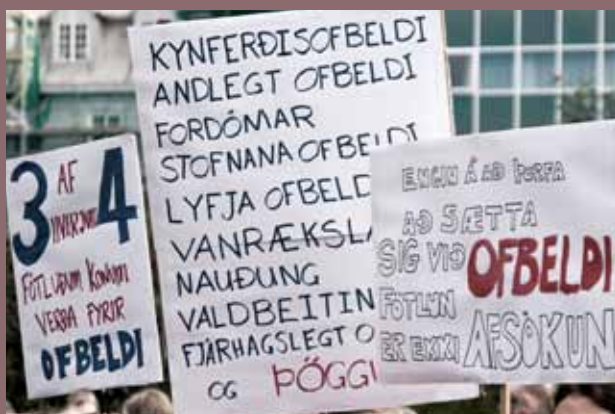 3 AF
HVERJUM 4
FÖTLUÐUM KONUM
VERÐA FYRIR
OFBELDI
KYNFERÐISOFBELDI
ANDLEGT OFBELDI
FORDÓMAR
STOFNANA OFBELDI
LYFJA OFBELD
VANRÆKSLA
NAUÐUNG
VALDBEITIN
FJÁRHAGSLEGT O
OG ÞÖGGU
ENGIN Á AÐ ÞURFA
AÐ SÆTTA
SIG VIÐ OFBELDI
FÖTLUN
ER EKKI AFSÖKUN